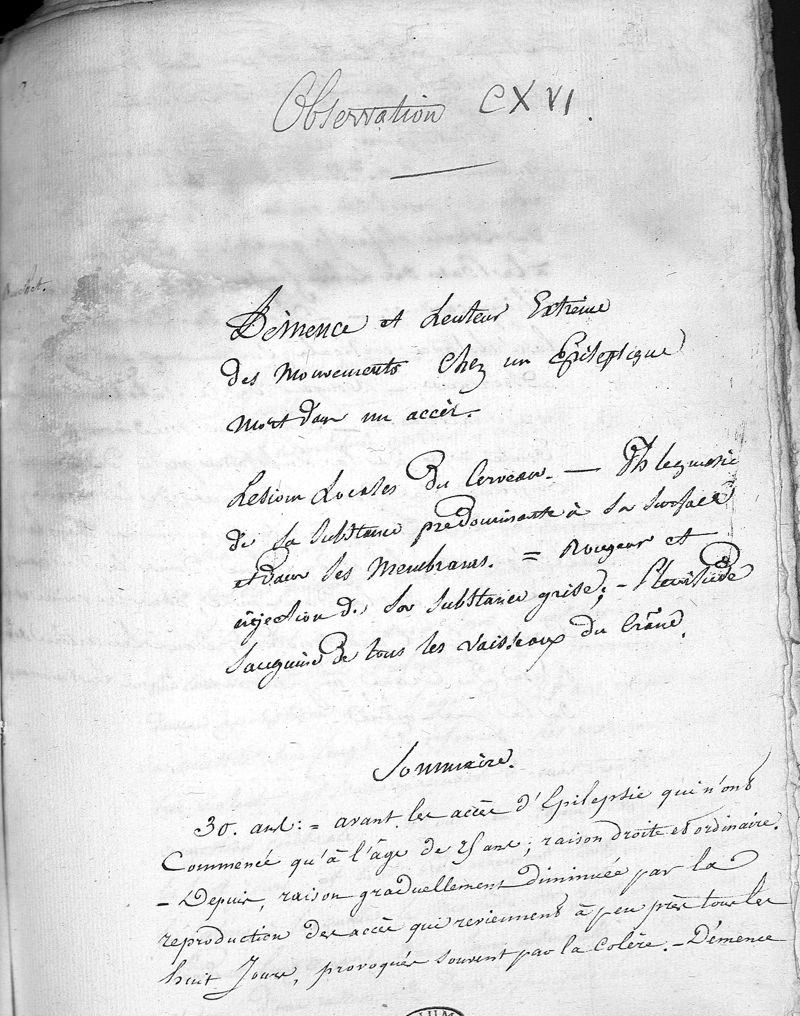 Observation CXVI.
Démence et Lenteur Extrème
des Mouvements Chez un Epileptique
mort dans un accès.
Lesions Locales du Cerveau. — Phlegmasie
de la substance prédominante à la surface
et dans les Membranes. = Rougeur et
injection de la substance grise; - Plénitude
sanguine de tous les vaisseaux du Crâne.
Sommaire.
30. ans: = avant les accès d'Epilepsie qui n'ont
Commencé qu'à l'âge de 25 ans; raison droite et ordinaire.
- Depuis, raison graduellement diminuée par la
reproduction des accès qui reviennent à peu près tous les
huit Jours, provoqués souvent par la Colère. - Démence